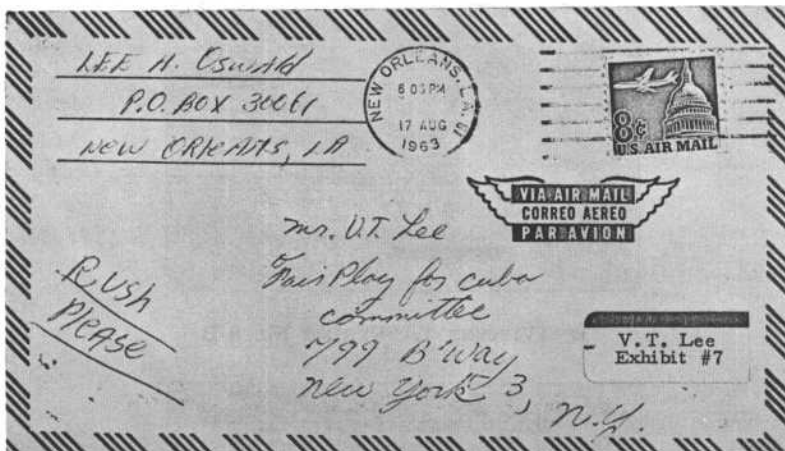 LEE H. OSWALD
P.O. BOX 30061
NEW ORLEANS, LA
NEW ORLEANS, LA.
6 03 PM
17 AUG
1963
8¢
U.S. AIR MAIL
VIA AIR MAIL
CORREO AEREO
PAR AVION
Mr. V.T. Lee
Fair Play for Cuba
committee
799 B'way
New York 3,
N.Y.
Rush
Please
V.T. Lee
Exhibit #7